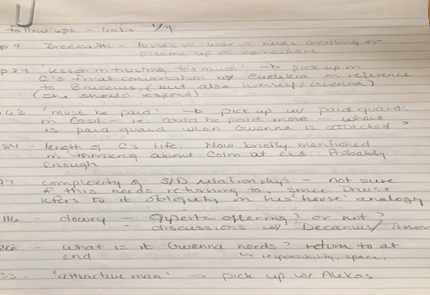 follow ups - limbs 1/4
p.9 - losses in war - needs or
picking up on
p.24 'lesson in trusting too much' → pick up in
C's final conversation w/ Eudokia in reference
to (but also himself/Gwenna)
(she should respond)
63 'must be paid' → pick up w/ paid guards
in could be paid more - where
is paid guard when Gwenna is attacked?
84 - length of C's life. Now briefly mentioned
in thinking about Colm at end. Probably
enough
complexity of S/D relationship - not sure
if this needs returning to, since
refers to it obliquely in his 'house' analogy
116 - dowry - offering? or not?
discussions w/ Decanus/
what is it Gwenna needs? return to at
end ↳ responsibility, space,
'attractive man' → pick up w/ Alekos